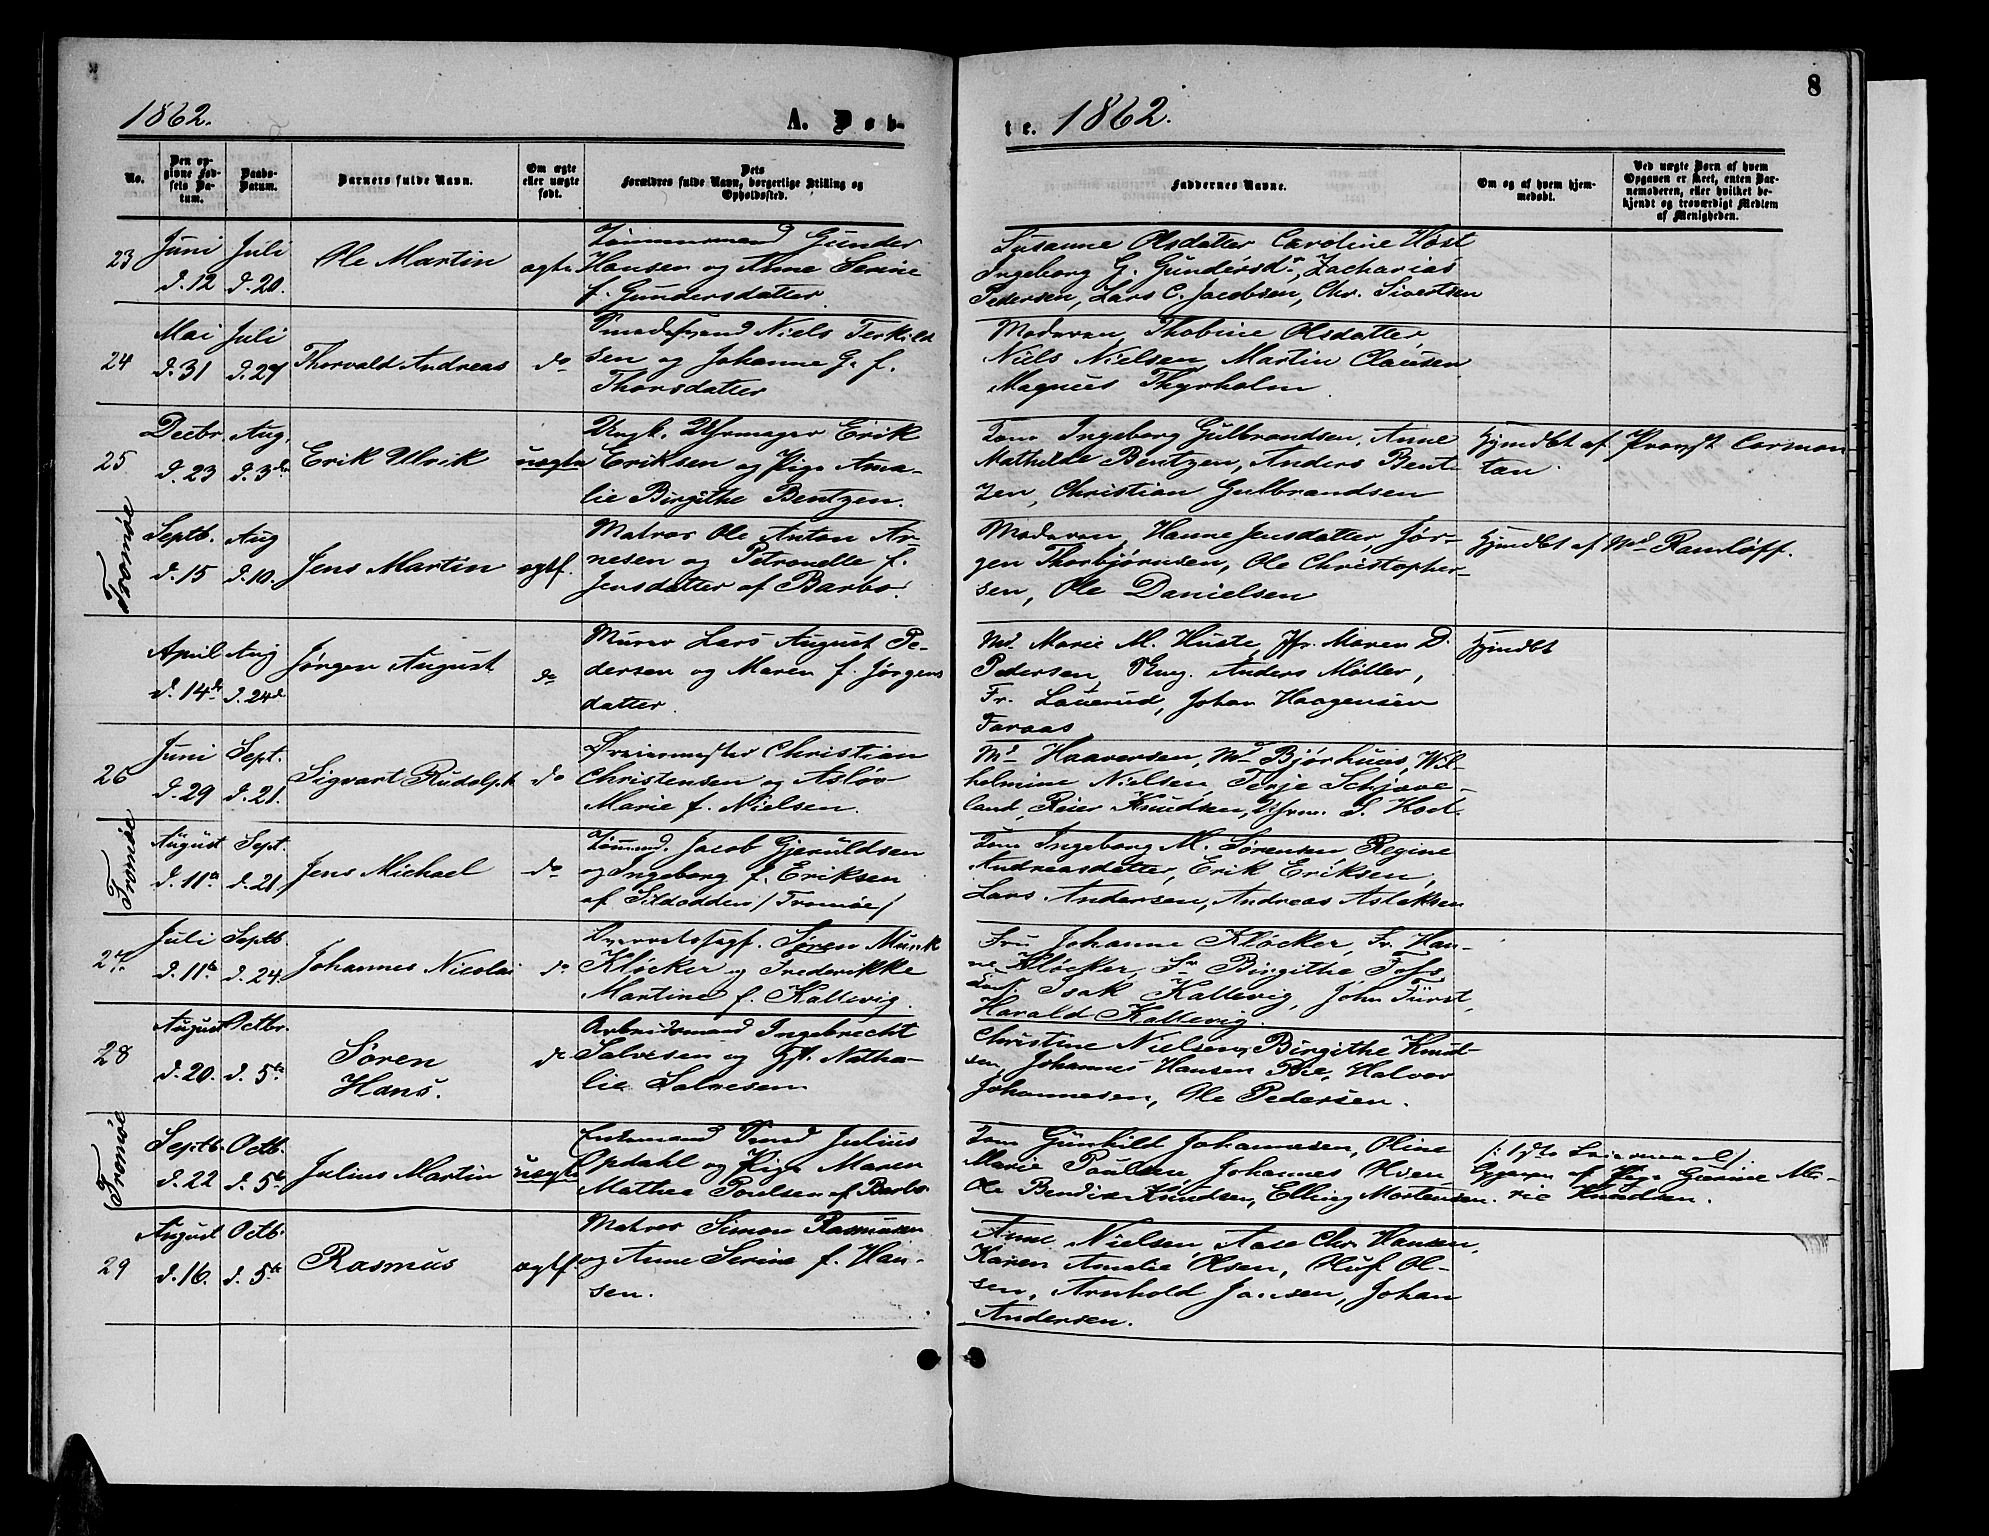 8
1862.
A. Døb-
te. 1862.
No.
Den op-
givne Fød-
sels Da-
tum.
Daabs-
Datum.
Barnets fulde Navn.
Om ægte
eller uægte
født.
Dets
Forældres fulde Navn, borgerlige Stilling og
Opholdssted.
Faddernes Navne.
Om og af hvem hjem-
medøbt.
Ved uægte Børn af hvem
Opgaven er skeet, enten Bar-
nemoderen, eller hvilket be-
kjendt og troværdigt Medlem
af Menigheden.
23
Juni
d. 12
Juli
d. 20.
Ole Martin
ægte
Tømmermand Gunder
Hansen og Anne Serine
f. Gundersdatter
Susanne Olsdatter Caroline Høst
Ingeborg G. Gundersdr, Zacharias
Pedersen, Lars C. Jacobsen, Chr. Sivertsen
24
Mai
d. 31
Juli
d. 27
Thorvald Andreas
do
Niels Terkild
sen og Johanne G. f.
Thorsdatter
Moderen, Thobine Olsdatter,
Niels Nielsen, Martin Clausen
Magnus Thyrholm.
25
Decbr.
d. 23
Aug.
d. 3die
Erik Ulrik
uægte
Ungk. Uhrmager Erik
Eriksen og Pige Ama-
lie Birgithe Bentzen.
Jom Ingeborg Gulbrandsen, Anne
Mathilde Bentzen, Anders Bent-
zen, Christian Gulbrandsen
Hjmdbt af Provst Cormon
tan.
Tromøe
Septb.
d. 15
Aug
d. 10.
Jens Martin
ægtf.
Matros Ole Anton Ar-
nesen og Petronelle f.
Jensdatter af Barbo.
Moderen, Hanne Jensdatter, Jør-
gen Thorbjørnsen, Ole Christopher-
sen, Ole Danielsen
Hjmdbt af Md Ramløff.
April
d. 14de
Aug
d. 24de
Jørgen August
do
Murer Lars August Pe-
dersen og Maren f. Jørgens
datter.
Md. Marie M. Huste, Jfr. Maren D.
Pedersen, Ung. Anders Møller,
Fr. Lauerud, Johan Haagensen
Faraas
Hjmdbt
26
Juni
d. 29
Sept.
d. 21.
Sigvart Rudolph
do
Dreiermester Christian
Christensen og Aslov
Marie f. Nielsen.
Md Haaversen, Md Bjørhuus, Wil-
helmine Nielsen, Terje Schjøve-
land, Reier Knudsen, Uhrm. S. Høst.
Tromøe
August
d. 11te
Sept.
d. 21
Jens Michael
do
Tømmd. Jacob Gjeruldsen
og Ingeborg f. Eriksen
af Sildodden / Tromøe /
Jom Ingeborg M. Sørensen Regine
Andreasdatter, Erik Eriksen,
Lars Andersen, Andreas Aslaksen
27.
Juli
d. 11te
Septb
d. 24.
Johannes Nicolai
do
Søren Munk
Kløcker og Frederikke
Martine f. Kallevig.
Fru Johanne Kløcker, Fr. Han-
ne Kløcker, Fr Birgithe Foss
Isak Kallevig, John Fürst,
Harald Kallevig.
28
August
d. 20.
Octbr.
d. 5te
Søren
Hans.
do
Arbeidsmand Ingebrecht
Salvesen og Gjt. Natha-
lie Salvesen
Christine Nielsen, Birgithe Knud-
sen, Johannes Hansen Bie, Halvor
Johannesen, Ole Pedersen.
Tromøe
Septb.
d. 22
Octb.
d. 5te
Julius Martin
uægte
Enkemand Smed Julius
Opdahl og Pige Maren
Mathea Poulsen af Barbo
Jom Gunhild Johannesen, Oline
Marie Poulsen, Johannes Olsen
Ole Bendix Knudsen, Elling Mortensen.
/: 1ste Leiermaal /
Opgaven af Pige Gurine Ma-
rie Knudsen.
29
August
d. 16.
Octb.
d. 5te
Rasmus
ægtf.
Matros Simon Rasmussen
og Anne Serine f. Han-
sen.
Anne Nielsen, Aase Chr. Hansen,
Karen Amalie Olsen, Oluf Ol-
sen, Arnhold Jansen, Johan
Andersen.